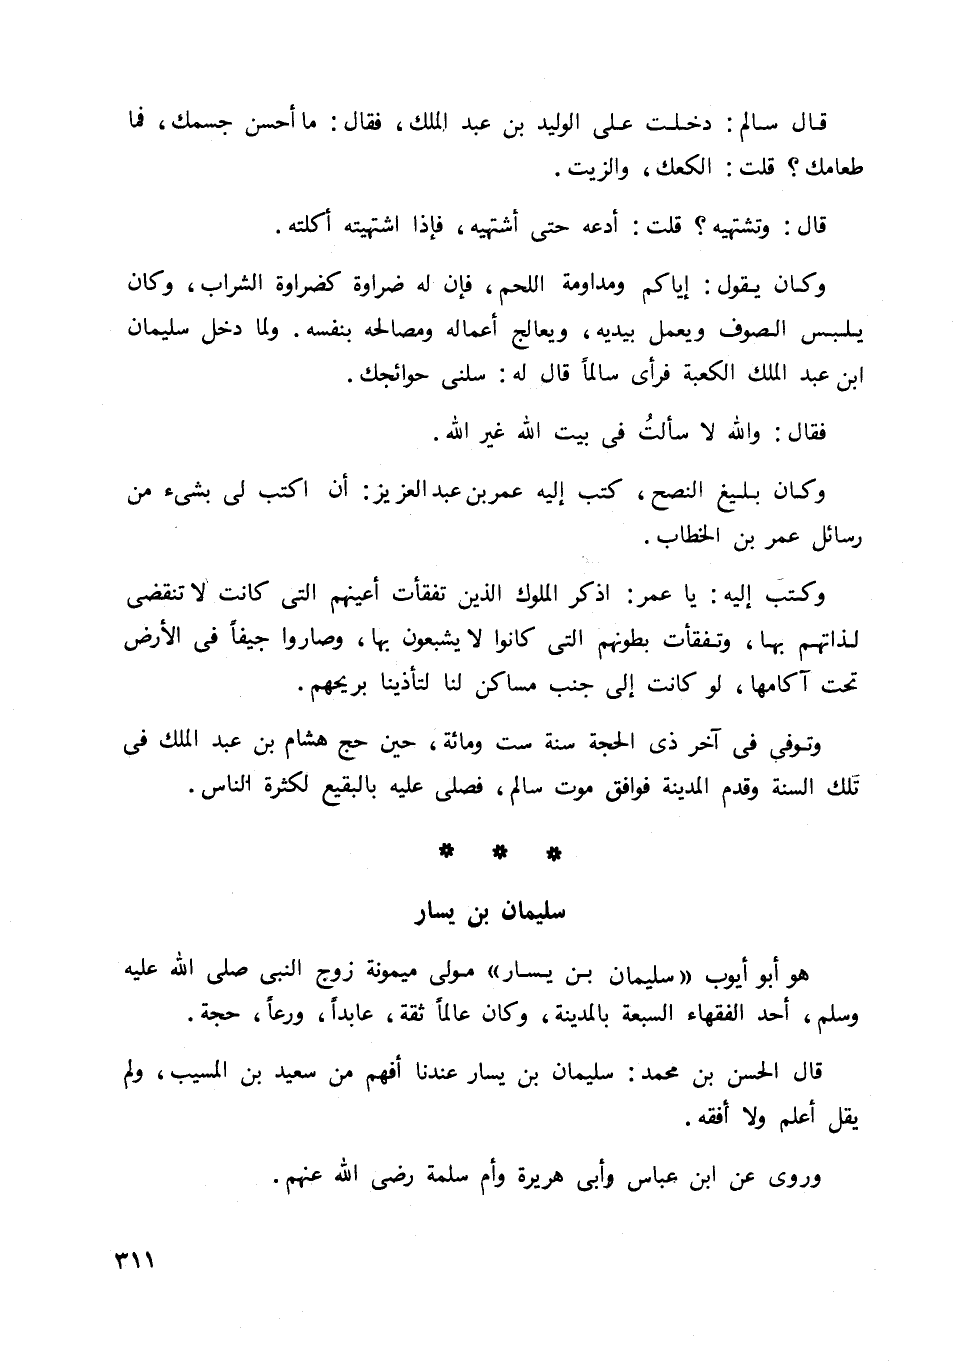 قال سالم : دخلت على الوليد بن عبد الملك ، فقال : ما أحسن جسمك ، فما
طعامك ؟ قلت : الكعك ، والزيت .
قال : وتشتهيه ؟ قلت : أدعه حتى أشتهيه ، فإذا اشتهيته أكلته .
وكان يقول : إياكم ومداومة اللحم ، فإن له ضراوة كضراوة الشراب ، وكان
يلبس الصوف ويعمل بيديه ، ويعالج أعماله ومصالحه بنفسه . ولما دخل سليمان
ابن عبد الملك الكعبة فرأى سالماً قال له : سلنى حوائجك .
فقال : والله لا سألتُ فى بيت الله غير الله .
وكان بليغ النصح ، كتب إليه عمر بن عبد العزيز : أن اكتب لى بشىء من
رسائل عمر بن الخطاب .
وكتب إليه : يا عمر : اذكر الملوك الذين تفقأت أعينهم التى كانت لا تنقضى
لذاتهم بها ، وتفقأت بطونهم التى كانوا لا يشبعون بها ، وصاروا جيفاً فى الأرض
تحت آكامها ، لو كانت إلى جنب مساكن لنا لتأذينا بريحهم .
وتوفي فى آخر ذى الحجة سنة ست ومائة ، حين حج هشام بن عبد الملك فى
تلك السنة وقدم المدينة فوافق موت سالم ، فصلى عليه بالبقيع لكثرة الناس .
* * *
سليمان بن يسار
هو أبو أيوب « سليمان بن يسار » مولى ميمونة زوج النبى صلى الله عليه
وسلم ، أحد الفقهاء السبعة بالمدينة ، وكان عالماً ثقة ، عابداً ، ورعاً ، حجة .
قال الحسن بن محمد : سليمان بن يسار عندنا أفهم من سعيد بن المسيب ، ولم
يقل أعلم ولا أفقه .
وروى عن ابن عباس وأبى هريرة وأم سلمة رضى الله عنهم .
٣١١